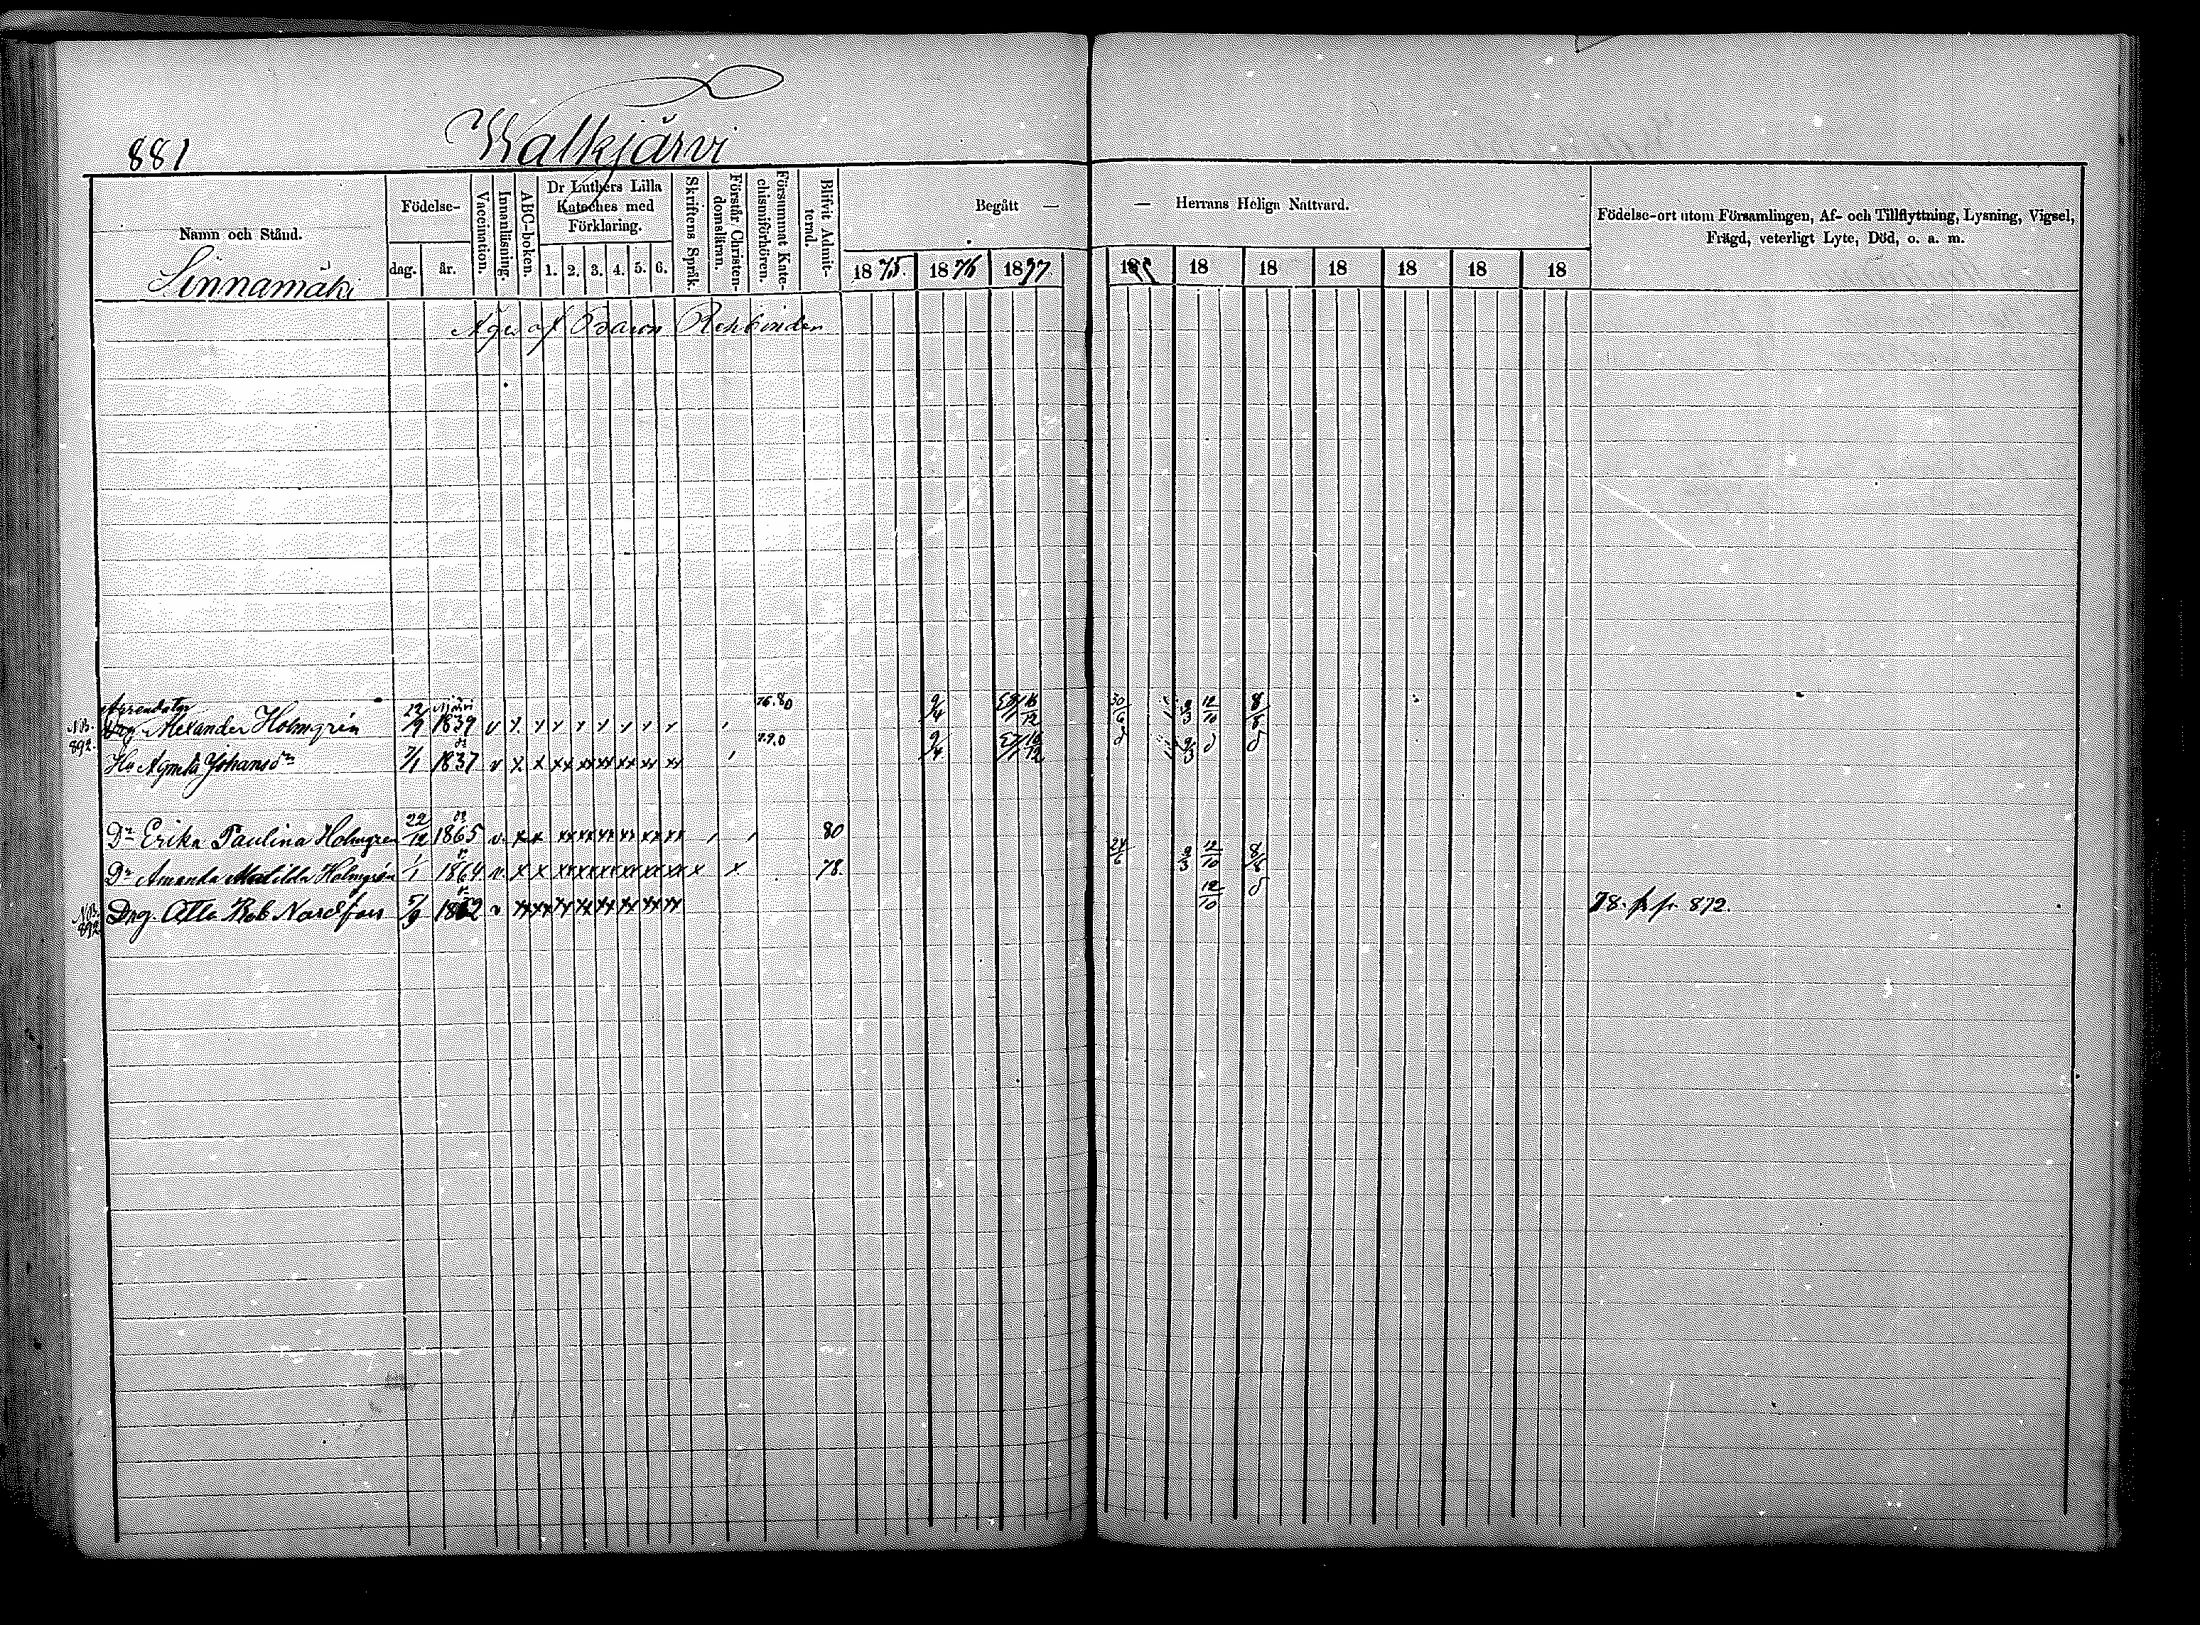 881 Walkjärvi
Namn och Stånd.
Sinnamäki
Födelse-
dag. år.
Vaccination.
Innanläsning.
ABC-boken.
Dr Luthers Lilla
Kateches med
Förklaring.
1. 2. 3. 4. 5. 6.
Skriftens Språk.
Förstår Christen-
domslären.
Försummat Kate-
chismiförhören.
Blifvit Admit-
terad.
Begått —
1875. 1876 1877.
— Herrans Heliga Nattvard.
18 18 18 18 18 18
Födelse-ort utom Församlingen, Af- och Tillflyttning, Lysning, Vigsel,
Frägd, veterligt Lyte, Död, o. a. m.
Äges af Baron Rehbinder
Arrendator 76.80
NB. Drg. Alexander Holmgrén 22/9 1839 v 9/4 16/12 30/6 9/3 12/10 8/8
892. Hu Agneta Johansdr 7/1 1837 v x x xx xx xx xx xx xx 9/4 16/12 9/3
Dr Erika Paulina Holmgren 22/12 1865 v x x xx xx xx xx xx xx 80
Dr Amanda Matilda Holmgrén 1/1 1864 v x x xx xx xx xx xx xx x x 78. 24/6 9/3 12/10 8/8
NB. 892 Drg. Otto Rob Nordfors 5/9 1862 v 12/10 78. fr. 872.